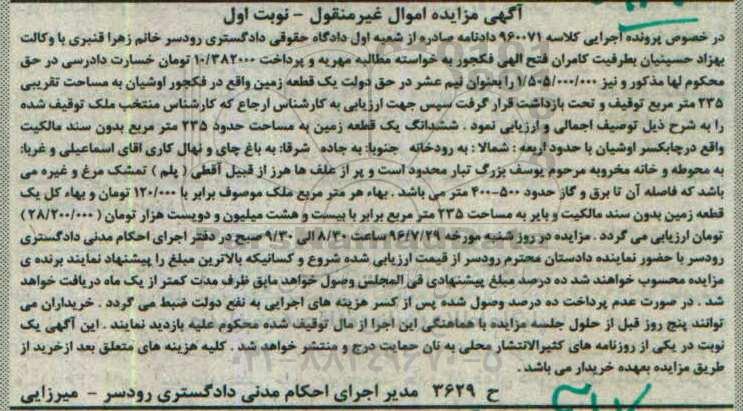 آگهی مزایده اموال غیرمنقول - نوبت اول
در خصوص پرونده اجرایی کلاسه ۹۶۰۰۷۱ دادنامه صادره از شعبه اول دادگاه حقوقی دادگستری رودسر خانم زهرا قنبری با وکالت
بهزاد حسینیان بطرفیت کامران فتح الهی فکجور به خواسته مطالبه مهریه و پرداخت ۱۰/۳۸۲۰۰۰ تومان خسارت دادرسی در حق
محکوم لها مذکور و نیز ۱/۵۰۵/۰۰۰/۰۰۰ را بعنوان نیم عشر در حق دولت یک قطعه زمین واقع در فکجور اوشیان به مساحت تقریبی
۲۳۵ متر مربع توقیف و تحت بازداشت قرار گرفت سپس جهت ارزیابی به کارشناس ارجاع که کارشناس منتخب ملک توقیف شده
را به شرح ذیل توصیف اجمالی و ارزیابی نمود . ششدانگ یک قطعه زمین به مساحت حدود ۲۳۵ متر مربع بدون سند مالکیت
واقع درچابکسر اوشیان با حدود اربعه : شمالا : به رودخانه جنوبا: به جاده شرقا: به باغ چای و نهال کاری اقای اسماعیلی و غربا:
به محوطه و خانه مخروبه مرحوم یوسف بزرگ تبار محدود است و پر از علف ها هرز از قبیل آقطی ( پلم ) تمشک مرغ و غیره می
باشد که فاصله آن تا برق و گاز حدود ۵۰۰-۴۰۰ متر می باشد . بهاء هر متر مربع ملک موصوف برابر با ۱۲۰/۰۰۰ تومان و بهاء کل یک
قطعه زمین بدون سند مالکیت و بایر به مساحت ۲۳۵ متر مربع برابر با بیست و هشت میلیون و دویست هزار تومان ( ۲۸/۲۰۰/۰۰۰)
تومان ارزیابی می گردد . مزایده در روز شنبه مورخه ۹۶/۷/۲۹ ساعت ۸/۳۰ الی ۹/۳۰ صبح در دفتر اجرای احکام مدنی دادگستری
رودسر با حضور نماینده دادستان محترم رودسر از قیمت ارزیابی شده شروع و کسانیکه بالاترین مبلغ را پیشنهاد نمایند برنده ی
مزایده محسوب خواهند شد ده درصد مبلغ پیشنهادی فی المجلس وصول خواهد مابق ظرف مدت کمتر از یک ماه دریافت خواهد
شد . در صورت عدم پرداخت ده درصد وصول شده پس از کسر هزینه های اجرایی به نفع دولت ضبط می گردد . خریداران می
توانند پنج روز قبل از حلول جلسه مزایده با هماهنگی این اجرا از مال توقیف شده محکوم علیه بازدید نمایند . این آگهی یک
نوبت در یکی از روزنامه های کثیرالانتشار محلی به نان حمایت درج و منتشر خواهد شد . کلیه هزینه های متعلق بعد ازخرید از
طریق مزایده بعهده خریدار می باشد .
ح ۳۶۲۹ مدیر اجرای احکام مدنی دادگستری رودسر - میرزایی